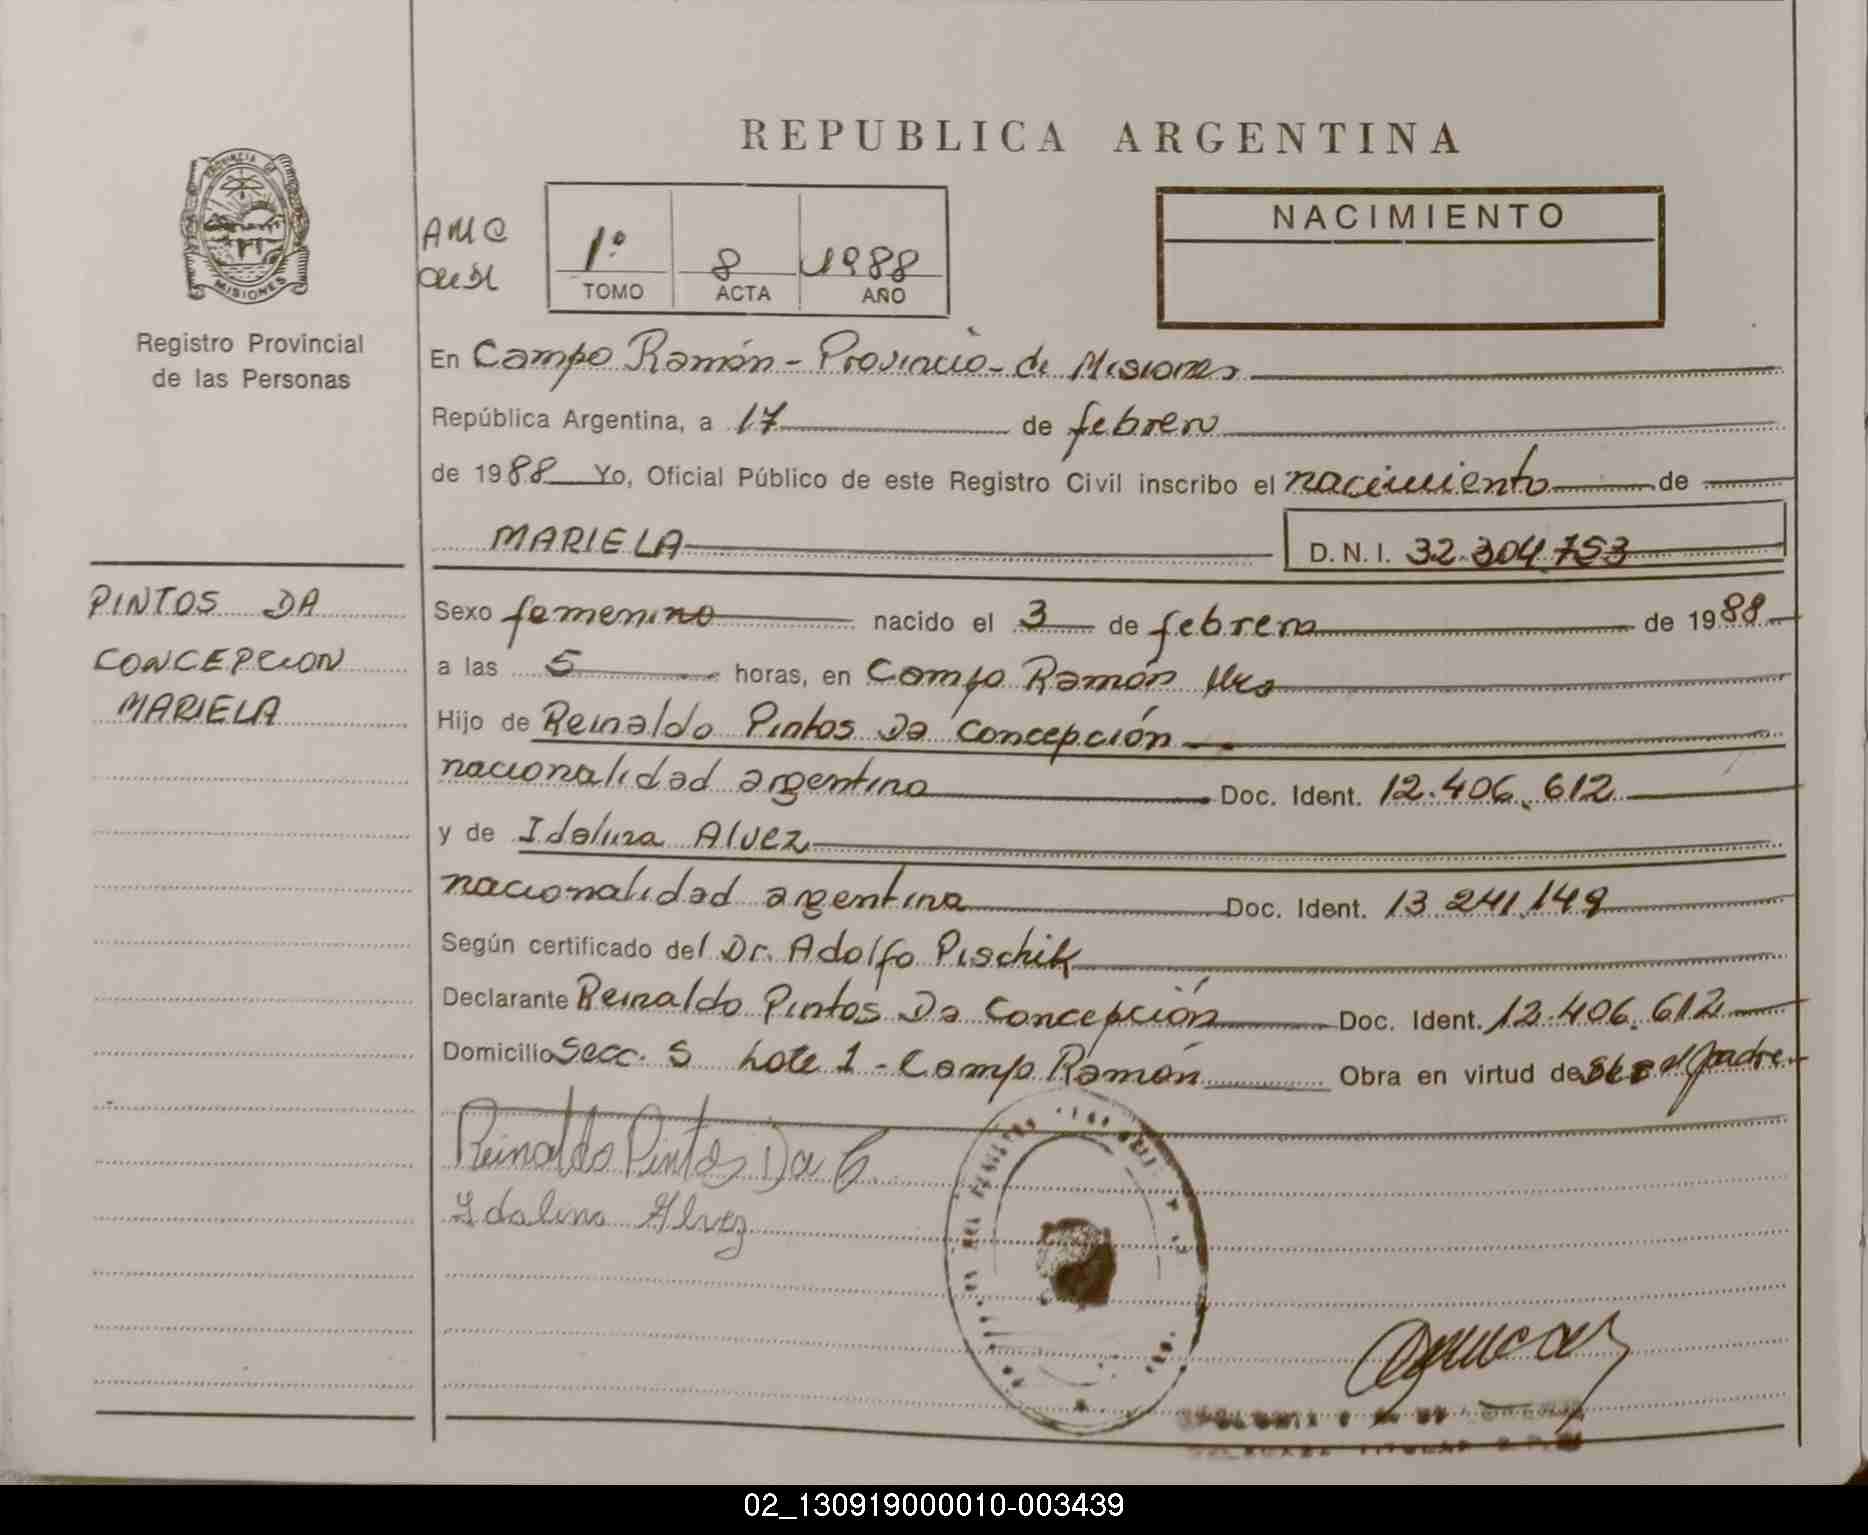 REPUBLICA ARGENTINA
PROVINCIA DE
MISIONES
Registro Provincial
de las Personas
AMC
1º 8 1988
TOMO ACTA AÑO
NACIMIENTO
En Campo Ramón - Provincia de Misiones
República Argentina, a 17 de febrero
de 1988 Yo, Oficial Público de este Registro Civil inscribo el nacimiento de
MARIELA D.N.I. 32.304.753
PINTOS DA
CONCEPCION
MARIELA
Sexo femenino nacido el 3 de febrero de 1988
a las 5 horas, en Campo Ramón Mes
Hijo de Reinaldo Pintos Da Concepción
nacionalidad argentina Doc. Ident. 12.406.612
y de Idalina Alvez
nacionalidad argentina Doc. Ident. 13.241.149
Según certificado del Dr. Adolfo Pischik
Declarante Reinaldo Pintos Da Concepción Doc. Ident. 12.406.612
Domicilio Secc. 5 Lote 1 - Campo Ramón Obra en virtud de ser el padre
Reinaldo Pintos Da C.
Idalina Alvez
02_130919000010-003439